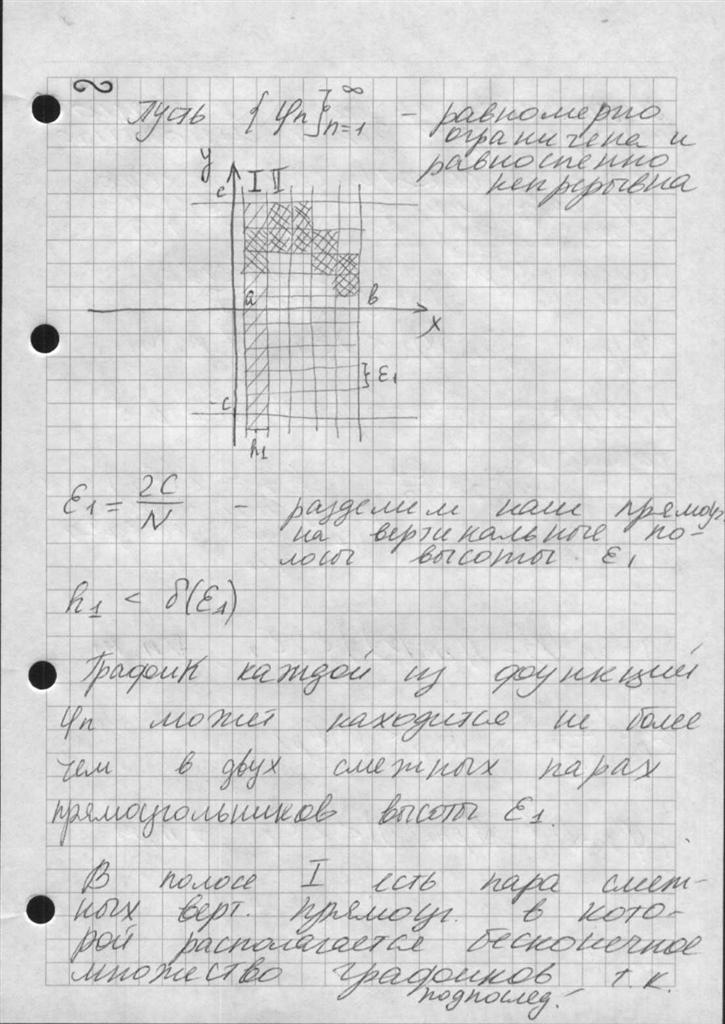 2
Пусть {φn}∞n=1 – равномерно
ограничена и
равностепенно
непрерывна
y
c
I II
a
b
x
ε1
-c
h1
ε1 = 2C/N – разделим наш прямоуг
на вертикальные по-
лосы высоты ε1
h1 < δ(ε1)
График каждой из функций
φn может находится не более
чем в двух смежных парах
прямоугольников высоты ε1.
В полосе I есть пара смеж-
ных верт. прямоуг. в кото-
рой располагается бесконечное
множество графиков т.к.
подпослед.